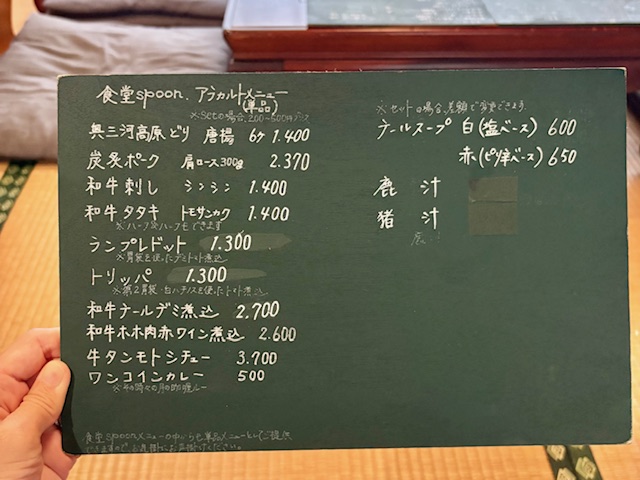 食堂spoon. アラカルトメニュー
(単品)
※Setの場合、200〜500円プラス
奥三河高原どり 唐揚 6ケ 1.400
炭炙ポーク 肩ロース300g 2.370
和牛刺し シンシン 1.400
和牛タタキ トモサンカク 1.400
※ハーフ&ハーフもできます
ランプレドット 1.300
※胃袋を使ったデミトマト煮込
トリッパ 1.300
※第2胃袋・白ハチノスを使ったトマト煮込
和牛テールデミ煮込 2,700
和牛ホホ肉赤ワイン煮込 2.600
牛タンモトシチュー 3.700
ワンコインカレー 500
食堂spoonメニューの中からも単品メニューとしてご提供
できますので、お声掛けくださいませ。
※セットの場合、差額で変更できます
テールスープ 白(塩ベース) 600
赤(ピリ辛ベース) 650
鹿 汁
猪 汁